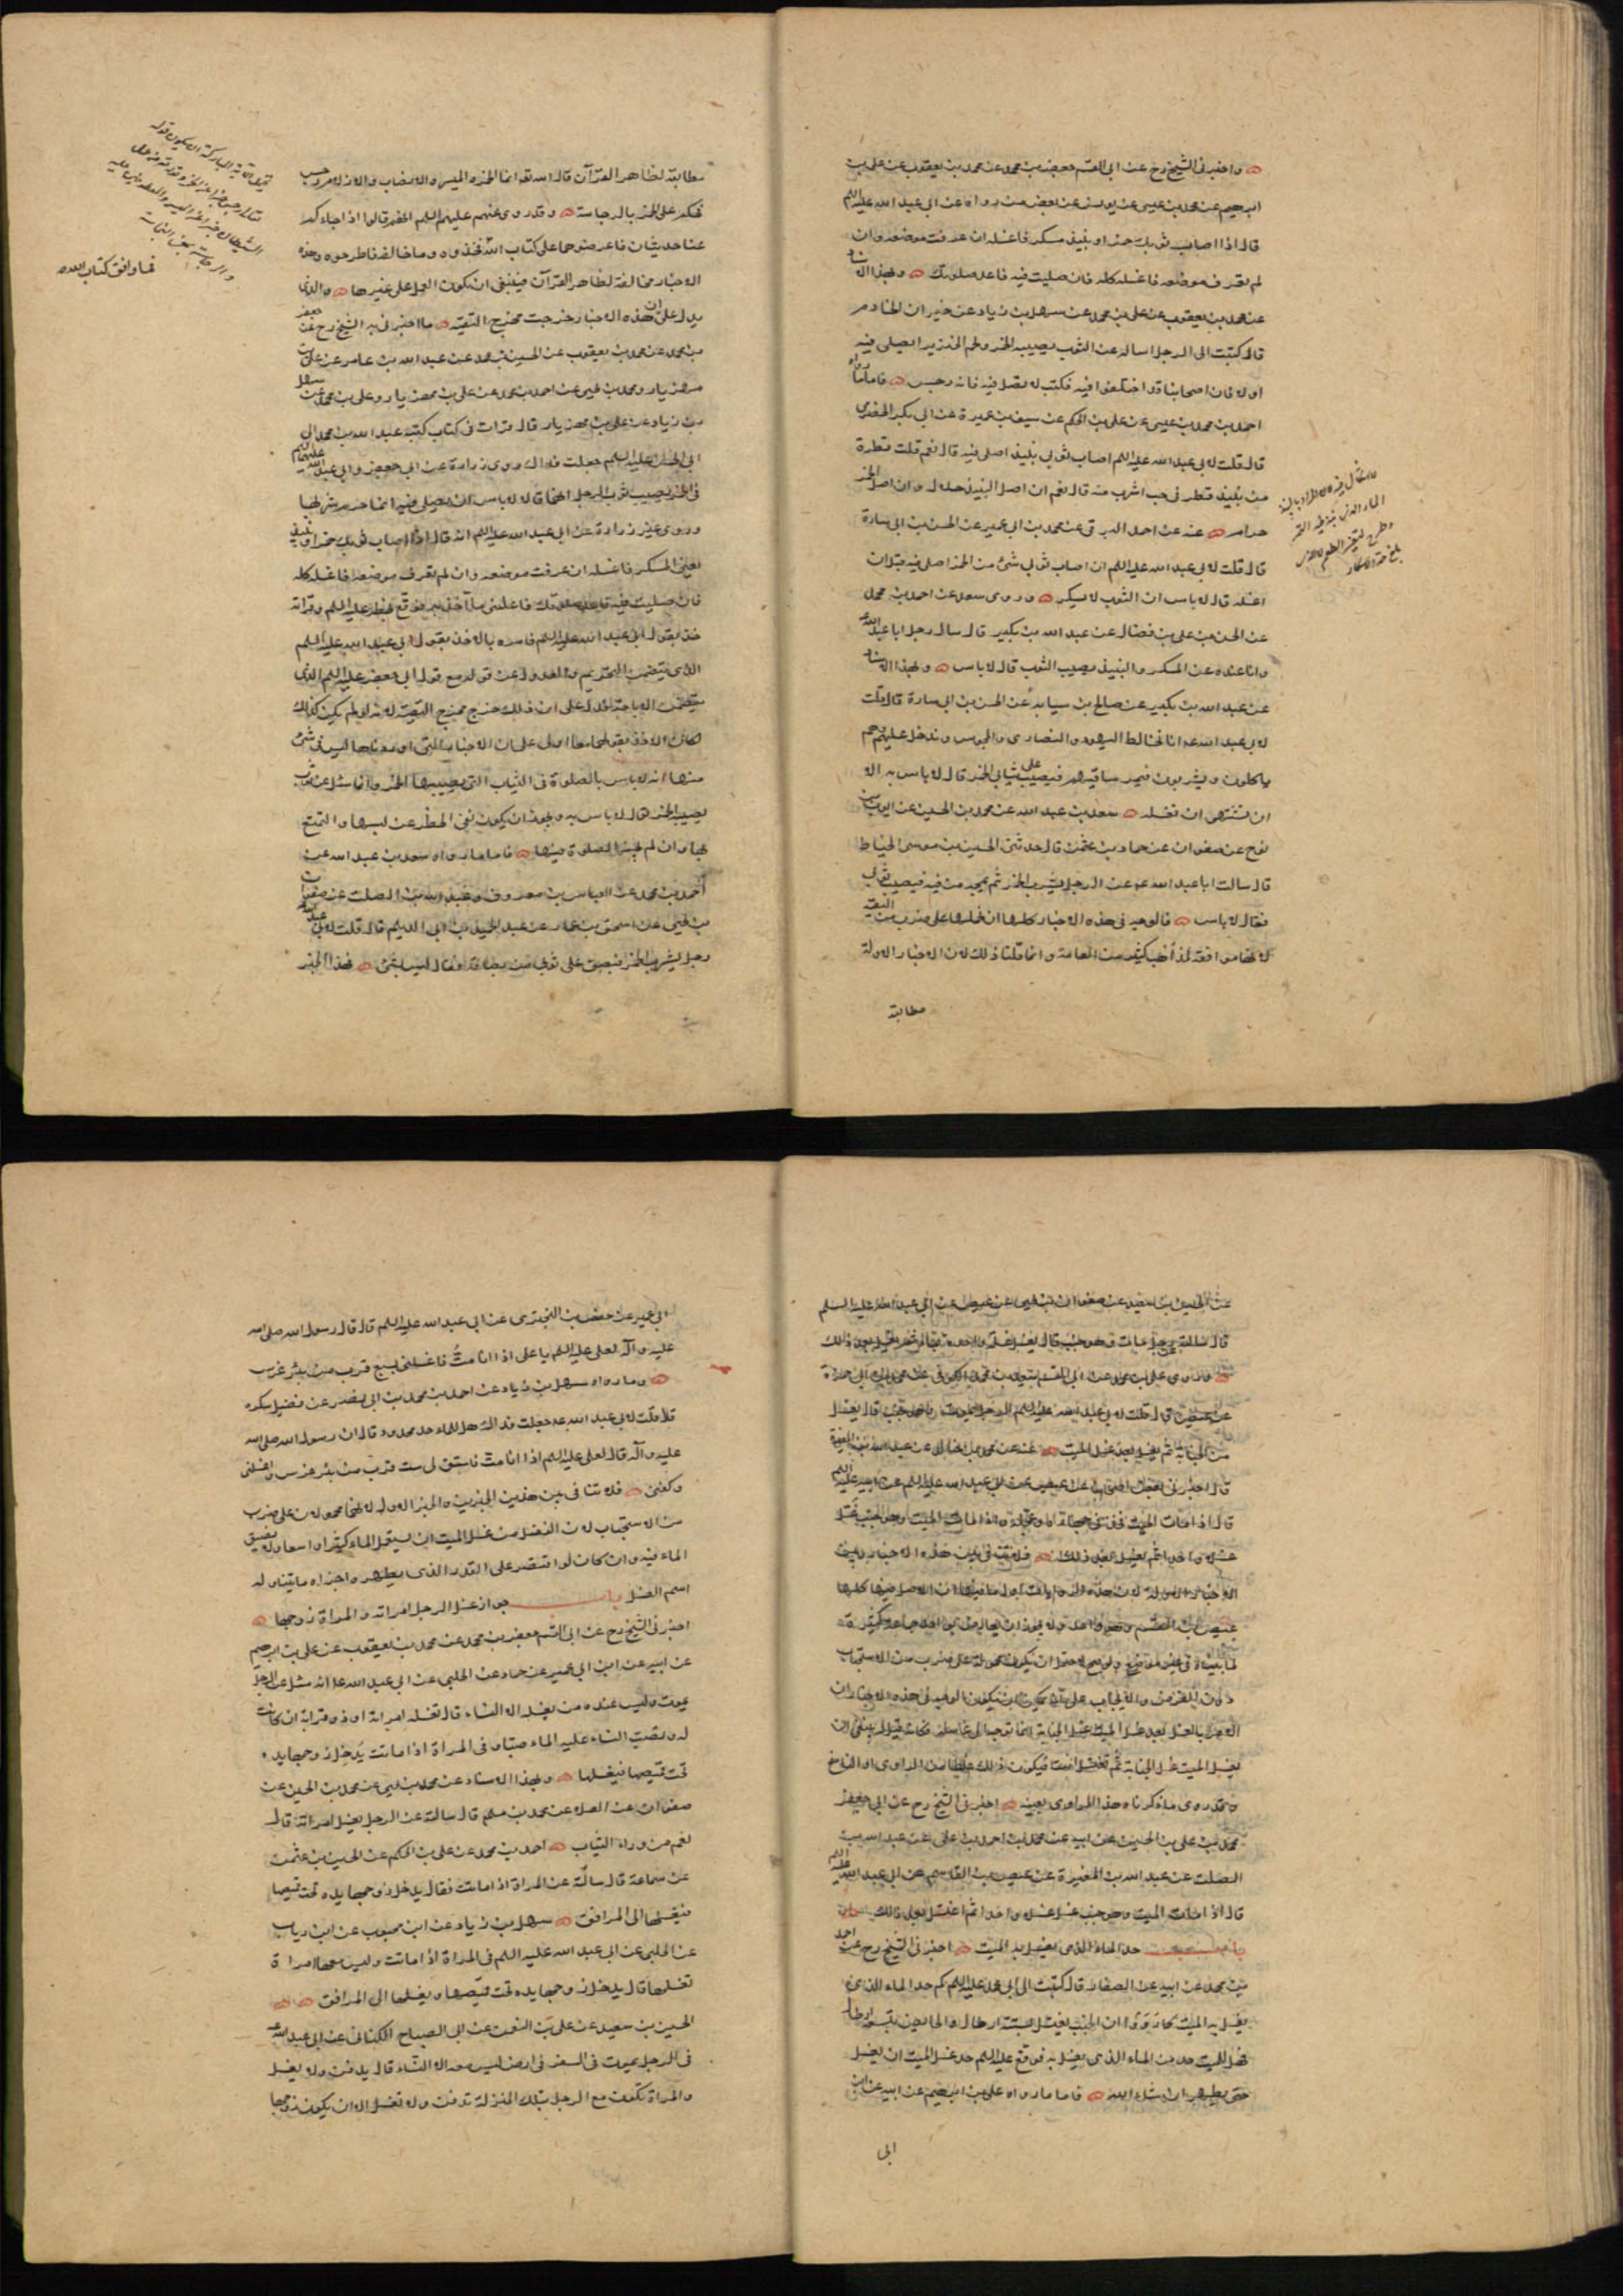 واخبرني الشيخ رح عن ابي القسم جعفر بن محمد عن محمد بن يعقوب عن علي بن
ابرهيم عن محمد بن عيسى عن يونس عن بعض من رواه عن ابي عبد الله عليه السلم
قال اذا اصاب ثوبك خمر او نبيذ مسكر فاغسله ان عرفت موضعه وان
لم تعرف موضعه فاغسله كله فان صليت فيه فاعد صلوتك وبهذا الاسناد
عن محمد بن يعقوب عن علي بن محمد عن سهل بن زياد عن خيران الخادم
قال كتبت الى الرجل اساله عن الثوب يصيبه الخمر ولحم الخنزير ايصلى فيه
او لا فان اصحابنا قد اختلفوا فيه فكتب لا تصل فيه فانه رجس فاما ما رواه
احمد بن محمد بن عيسى عن علي بن الحكم عن سيف بن عميرة عن ابي بكر الحضرمي
قال قلت لابي عبد الله عليه السلم اصاب ثوبي نبيذ اصلي فيه قال نعم قلت قطرة
من نبيذ قطر في حب اشرب منه قال نعم ان اصل النبيذ حلال وان اصل الخمر
حرام عنه عن احمد البرقي عن محمد بن ابي عمير عن الحسن بن ابي سارة
قال قلت لابي عبد الله عليه السلم ان اصاب ثوبي شئ من الخمر اصلي فيه قبل ان
اغسله قال لا باس ان الثوب لا يسكر وروى سعد عن احمد بن محمد
عن الحسن بن علي بن فضال عن عبد الله بن بكير قال سال رجل ابا عبد الله ع
وانا عنده عن المسكر والنبيذ يصيب الثوب قال لا باس وبهذا الاسناد
عن عبد الله بن بكير عن صالح بن سيابة عن الحسن بن ابي سارة قال قلت
لابي عبد الله ع انا نخالط اليهود والنصارى والمجوس وندخل عليهم وهم
ياكلون ويشربون فيمر ساقيهم فيصب على ثيابي الخمر قال لا باس به الا
ان تشتهي ان تغسله سعد بن عبد الله عن محمد بن الحسين عن ايوب بن
نوح عن صفوان عن حماد بن عثمن قال حدثني الحسين بن موسى الحناط
قال سالت ابا عبد الله ع عن الرجل يشرب الخمر ثم يمجه من فيه فيصيب ثوبي
فقال لا باس فالوجه في هذه الاخبار كلها ان نحملها على ضرب من التقية
لانها موافقة لمذاهب كثير من العامة وانما قلنا ذلك لان الاخبار الاولة
مطابقة
مطابقة لظاهر القرآن قال الله تعه انما الخمر والميسر والانصاب والازلام رجس
فحكم على الخمر بالرجاسة وقد روي عنهم عليهم السلم انهم قالوا اذا جاءكم
عنا حديثان فاعرضوهما على كتاب الله فخذوه وما خالفه فاطرحوه وهذه
الاخبار مخالفة لظاهر القرآن فينبغي ان يكون العمل على غيرها والذي
يدل على ان هذه الاخبار خرجت مخرج التقية ما اخبرني به الشيخ رح عن جعفر
بن محمد عن محمد بن يعقوب عن الحسين بن محمد عن عبد الله بن عامر عن علي بن
مهزيار ومحمد بن يحيى عن احمد بن محمد عن علي بن مهزيار وعلي بن محمد عن سهل
بن زياد عن علي بن مهزيار قال قرات في كتاب كتبه عبد الله بن محمد الى
ابي الحسن عليه السلم جعلت فداك روى زرارة عن ابي جعفر وابي عبد الله عليهما السلم
في الخمر يصيب ثوب الرجل انهما قالا لا باس ان يصلى فيه انما حرم شربها
وروى غير زرارة عن ابي عبد الله عليه السلم انه قال اذا اصاب ثوبك خمر او نبيذ
يعني المسكر فاغسله ان عرفت موضعه وان لم تعرف موضعه فاغسله كله
فان صليت فيه فاعد صلوتك فاعلمني ما آخذ به فوقع بخطه عليه السلم وقراته
خذ بقول ابي عبد الله عليه السلم فامره بالاخذ بقول ابي عبد الله عليه السلم
الذي يتضمن التحريم والعدول عن قوله مع قول ابي جعفر عليه السلم الذي
يتضمن الاباحة يدل على ان ذلك خرج مخرج التقية لانه لو لم يكن كذلك
لكان الاخذ بقولهما معا اولى على ان الاخبار التي اوردناها ليس في شئ
منها انه لا باس بالصلوة في الثياب التي يصيبها الخمر وانما سئل عن ثوب
يصيب الخمر فقال لا باس به ويجوز ان يكون نفي الحظر عن لبسها والتمتع
بها وان لم يجز الصلوة فيها فاما ما رواه سعد بن عبد الله عن
احمد بن محمد عن العباس بن معروف وعبد الله بن الصلت عن صفوان
بن يحيى عن اسحق بن عمار عن عبد الحميد بن ابي الديلم قال قلت لابي عبد الله
رجل يشرب الخمر فيبصق على ثوبي من بصاقه فقال ليس بشئ فهذا الخبر
فما وافق كتاب الله
عن الحسين بن سعيد عن صفوان بن يحيى عن عيص عن ابي عبد الله عليه السلم
قال سالته عن رجل مات وهو جنب قال يغسل غسلة واحدة بماء ثم يغسل بعد ذلك
وروى علي بن محمد عن ابي القسم سعيد بن محمد الكوفي عن محمد بن ابي حمزة
عن عيص قال قلت لابي عبد الله عليه السلم الرجل يموت وهو جنب قال يغسل
من الجنابة ثم يغسل بعد غسل الميت عنه عن محمد بن خالد عن عبد الله بن المغيرة
قال اخبرني بعض اصحابنا عن عيص عن ابي عبد الله عليه السلم عن ابيه عليه السلم
قال اذا مات الميت فخذ في جهازه وعجله واذا مات الميت وهو جنب غسل
غسلا واحدا ثم يغسل بعد ذلك فلا تنافي بين هذه الاخبار وبين
الاخبار الاولة لان هذه الروايات اول ما فيها ان الاصل فيها كلها
عيص بن القسم وهو واحد ولا يجوز ان يعارض بواحد جماعة كثيرة
لما بيناه في غير موضع ولو صح لاحتمل ان يكون محمولا على ضرب من الاستحباب
دون الفرض والايجاب على انه يمكن ان يكون الوجه في هذه الاخبار ان
الامر بالغسل بعد غسل الميت غسل الجنابة انما توجه الى غاسله فكانه قيل له ينبغي ان
يغسل الميت غسل الجنابة ثم تغتسل انت فيكون ذلك غلطا من الراوي او الناسخ
وقد روى ما ذكرناه هذا الراوي بعينه اخبرني الشيخ رح عن ابي جعفر
محمد بن علي بن الحسين عن ابيه عن محمد بن احمد بن علي عن عبد الله بن
الصلت عن عبد الله بن المغيرة عن عيص بن القاسم عن ابي عبد الله عليه السلم
قال اذا مات الميت وهو جنب غسل غسلا واحدا ثم اغتسل بعد ذلك
باب حد الماء الذي يغسل به الميت اخبرني الشيخ رح عن احمد
بن محمد عن ابيه عن الصفار قال كتبت الى ابي محمد عليه السلم كم حد الماء الذي
يغسل به الميت كما رووا ان الجنب يغتسل بستة ارطال والحائض بتسعة ارطال
فهل للميت حد من الماء الذي يغسل به فوقع عليه السلم حد غسل الميت ان يغسل
حتى يطهر ان شاء الله فاما ما رواه علي بن ابرهيم عن ابيه عن ابن
ابي
ابي عمير عن حفص بن البختري عن ابي عبد الله عليه السلم قال قال رسول الله صلى الله
عليه وآله لعلي عليه السلم يا علي اذا انا مت فاغسلني بسبع قرب من بئر غرس
وما رواه سهل بن زياد عن احمد بن محمد بن ابي نصر عن فضيل سكره
قال قلت لابي عبد الله ع جعلت فداك هل للماء حد محدود قال ان رسول الله صلى الله
عليه وآله قال لعلي عليه السلم اذا انا مت فاستق لي ست قرب من بئر غرس واغسلني
وكفني فلا تنافي بين هذين الخبرين والخبر الاول لانهما محمولان على ضرب
من الاستحباب لان الفضل من غسل الميت ان يستعمل الماء كثيرا واسعا ولا يضيق
الماء فيه وان كان لو اقتصر على القدر الذي يطهر واجزاه ما يتناوله
اسم الغسل باب جواز غسل الرجل امراته والمراة زوجها
اخبرني الشيخ رح عن ابي القسم جعفر بن محمد عن محمد بن يعقوب عن علي بن ابرهيم
عن ابيه عن ابن ابي عمير عن حماد عن الحلبي عن ابي عبد الله ع انه سئل عن الرجل
يموت وليس عنده من يغسله الا النساء قال تغسله امراته او ذو قرابة ان كانت
له وتصب النساء عليه الماء صبا وفي المراة اذا ماتت يدخل زوجها يده
تحت قميصها فيغسلها وبهذا الاسناد عن محمد بن يحيى عن محمد بن الحسين عن
صفوان عن العلا عن محمد بن مسلم قال سالته عن الرجل يغسل امراته قال
نعم من وراء الثياب احمد بن محمد عن علي بن الحكم عن الحسين بن عثمن
عن سماعة قال سالته عن المراة اذا ماتت فقال يدخل زوجها يده تحت قميصها
فيغسلها الى المرافق سهل بن زياد عن ابن محبوب عن ابن رياب
عن الحلبي عن ابي عبد الله عليه السلم في المراة اذا ماتت وليس معها امراة
تغسلها قال يدخل زوجها يده تحت قميصها ويغسلها الى المرافق
الحسين بن سعيد عن علي بن النعمن عن ابي الصباح الكناني عن ابي عبد الله ع
في الرجل يموت في السفر في ارض ليس معه الا النساء قال يدفن ولا يغسل
والمراة تكون مع الرجل بتلك المنزلة تدفن ولا تغسل الا ان يكون زوجها